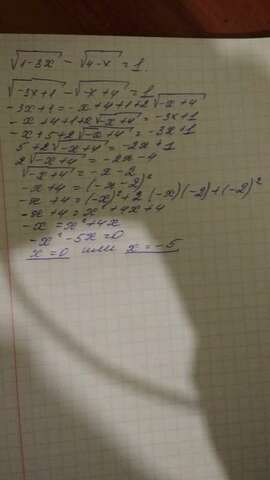 √1-3x - √4-x = 1.
√-3x+1 - √-x+4 = 1
-3x+1 = -x+4+1+2√-x+4
-x+4+1+2√-x+4 = -3x+1
-x+5+2√-x+4 = -3x+1
5+2√-x+4 = -2x+1
2√-x+4 = -2x-4
√-x+4 = -x-2
-x+4 = (-x-2)²
-x+4 = (-x)²+2(-x)(-2)+(-2)²
-x+4 = x²+4x+4
-x = x²+4x
-x²-5x=0
x=0 или x=-5